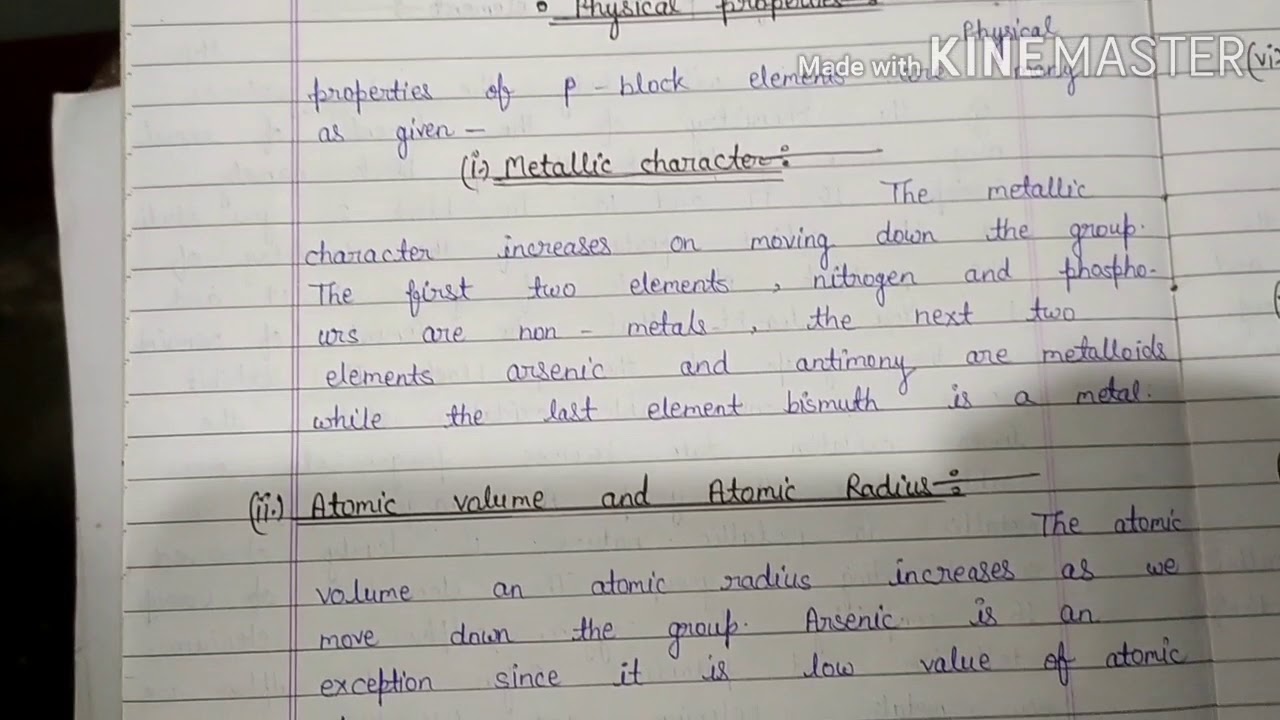 • Physical properties :
Physical
Made with KINEMASTER
properties of p - block elements are many
as given -
(i.) Metallic character :-
The metallic
character increases on moving down the group.
The first two elements , nitrogen and phospho-
urs are non - metals , the next two
elements arsenic and antimony are metalloids
while the last element bismuth is a metal.
(ii.) Atomic volume and Atomic Radius :-
The atomic
volume an atomic radius increases as we
move down the group. Arsenic is an
exception since it is low value of atomic
(vi)